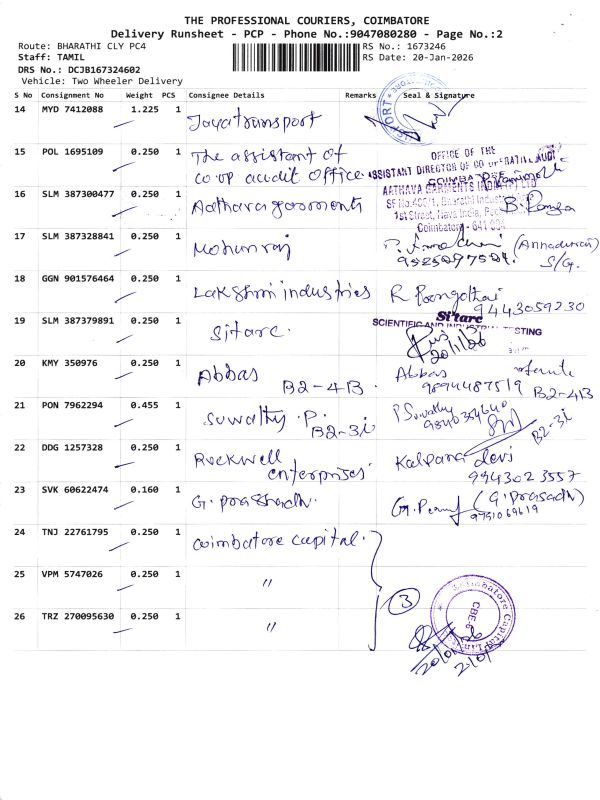 THE PROFESSIONAL COURIERS, COIMBATORE
Delivery Runsheet - PCP - Phone No.:9047080280 - Page No.:2
Route: BHARATHI CLY PC4 RS No.: 1673246
Staff: TAMIL RS Date: 20-Jan-2026
DRS No.: DCJB167324602
Vehicle: Two Wheeler Delivery
S No Consignment No Weight PCS Consignee Details Remarks Seal & Signature
14 MYD 7412088 1.225 1 Jayatransport
15 POL 1695109 0.250 1 The assistant of
co op audit office
OFFICE OF THE
ASSISTANT DIRECTOR OF CO OPERATIVE AUDIT
COIMBATORE
16 SLM 387300477 0.250 1 Aathava garments
AATHAVA GARMENTS INDIA (P) LTD
SF No.406/1, Bharathi Indust
1st Street, Nava India,
Coimbatore - 641 004
B. Ramya
17 SLM 387328841 0.250 1 Mohunraj
(Annadurai)
S/G.
18 GGN 901576464 0.250 1 Lakshmi industries R Poongothai
9443059230
19 SLM 387379891 0.250 1 Sitarc.
Sitarc
SCIENTIFIC AND INDUSTRIAL TESTING
20/1/26
20 KMY 350976 0.250 1 Abbas B2-4B. Abbas
9894487519 B2-4B
21 PON 7962294 0.455 1 Suwathy .P. B2-3i P Suwathy
9840354640
B2-3i
22 DDG 1257328 0.250 1 Rockwell enterprises Kalpana devi
9943023557
23 SVK 60622474 0.160 1 G. prasshadh. (G. Prasadh)
9791069619
24 TNJ 22761795 0.250 1 Coimbatore capital.
25 VPM 5747026 0.250 1 "
3
26 TRZ 270095630 0.250 1 "
Coimbatore Capital Limited